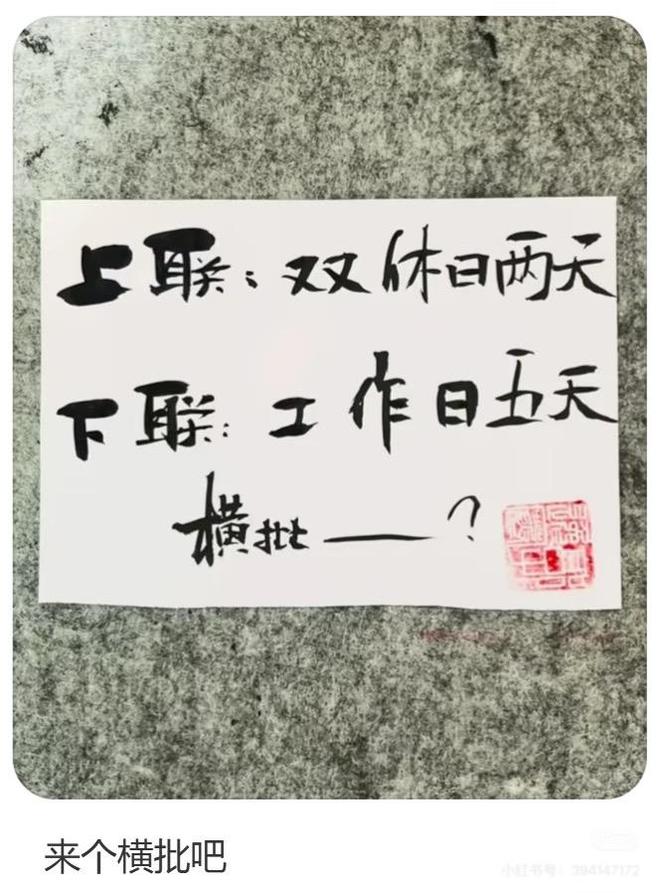 上联：双休日两天
下联：工作日五天
横批——？
来个横批吧
小红书号：394147172